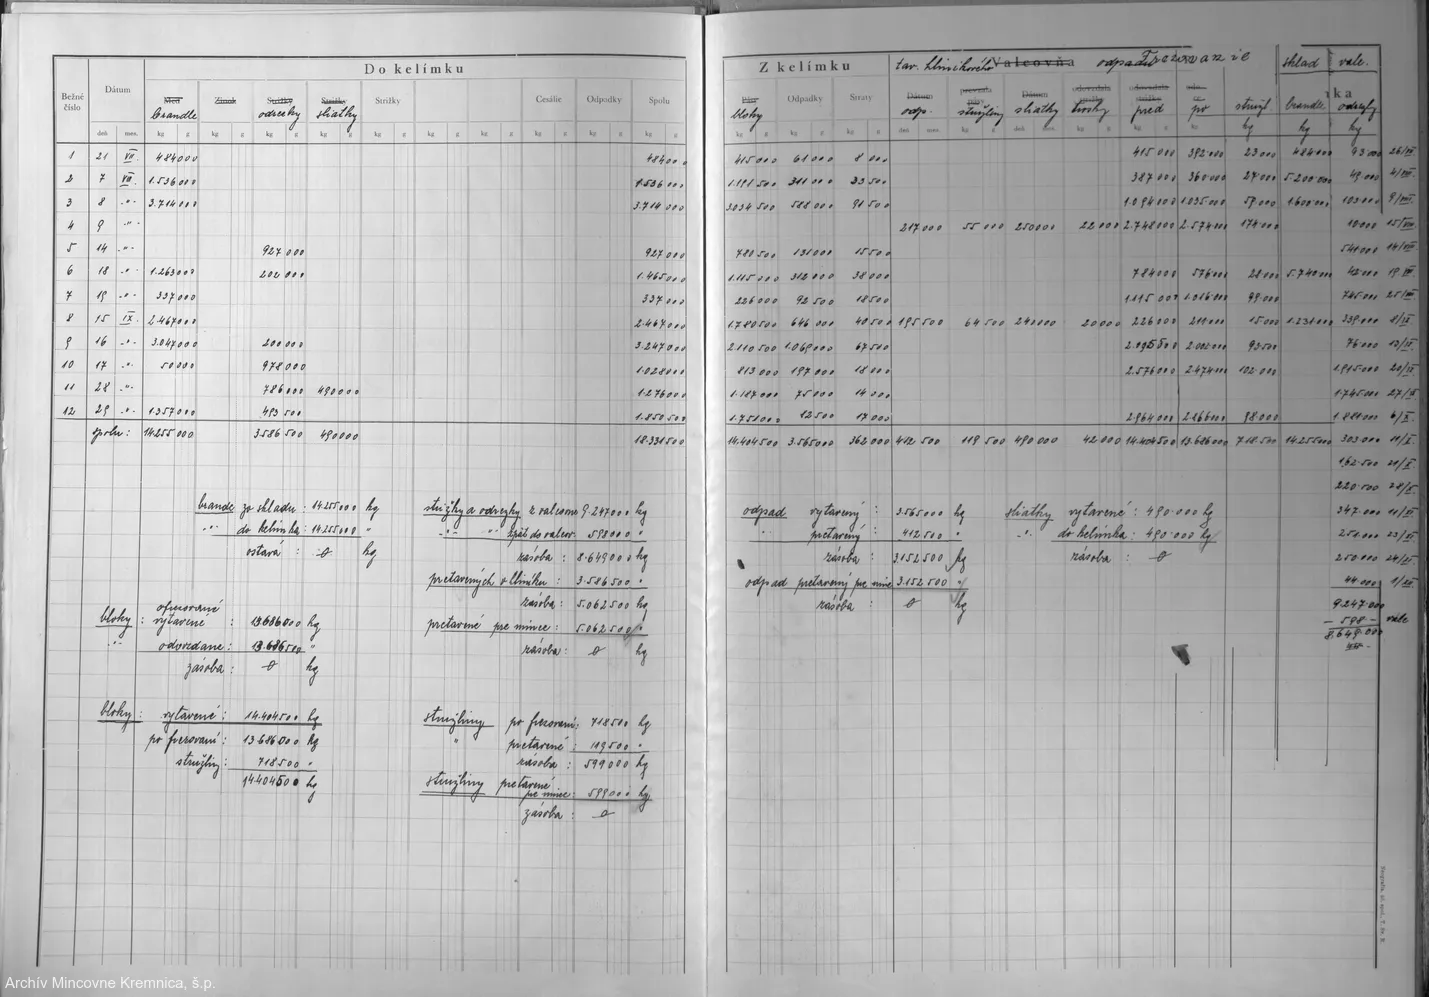 Do kelímku
Bežné číslo
Dátum
Meď
Zinok
Strižky
Strižky
Strižky
Cesálie
Odpadky
Spolu
brandle
odrezky
sliatky
deň mes. kg g kg g kg g kg g kg g kg g kg g kg g kg g
1 21 VII. 484000 484000
2 7 VIII. 1.536000 1.536000
3 8 -"- 3.714000 3.714000
4 9 -"-
5 14 -"- 927000 927000
6 18 -"- 1.263000 202000 1.465000
7 19 -"- 337000 337000
8 15 IX. 2.467000 2.467000
9 16 -"- 3.047000 200000 3.247000
10 17 -"- 50000 978000 1.028000
11 28 -"- 786000 490000 1.276000
12 29 -"- 1357000 493500 1.850.500
spolu: 14.255000 3.586500 490000 18.331500
brandle zo skladu: 14.255000 kg
-"- do kelímka: 14.255000 "
ostává: 0 kg
stružky a odrezky z valcovne 9.247000 kg
-"- -"- zpäť do valcov. 598000 "
zásoba: 8.649000 kg
pretavených v hliníku: 3.586500 "
zásoba: 5.062500 kg
pretavené pre mince: 5.062500 "
zásoba: 0 kg
bloky: ofrezované
vytavené: 13.686000 kg
-"- odovzdané: 13.686500 "
zásoba: 0 kg
bloky: vytavené: 14.404500 kg
po frezovaní: 13.686000 kg
stružliny: 718500 "
14.404500 kg
stružliny po frezovaní: 718500 kg
" pretavené: 119500 "
zásoba: 599000 kg
stružliny pretavené
pre mince: 599000 kg
zásoba: 0
Z kelímku
tav. hliníkového
Valcovňa
odpadu
Frezovanie
sklad
valc.
ka
bloky
Odpadky
Straty
odp.
stružliny
sliatky
trochy
pred
po
stružl.
brandle
odrezky
415000 61000 8000 415000 392000 23000 484000 93000 26/VII
1.191500 311000 33500 387000 360000 27000 5.200000 49000 4/VIII
3.034500 588000 91500 1.094000 1.035000 59000 1.600000 103000 9/VIII.
217000 55000 250000 22000 2.748000 2.574000 174000 10000 15/VIII
780500 131000 15500 541000 14/VIII
1.115000 312000 38000 784000 576000 28000 5.740000 42000 19/VIII
226000 92500 18500 1.115000 1.016000 99000 745000 25/VIII
1.780500 646000 40500 195500 64500 240000 20000 226000 211000 15000 1.231000 239000 8/IX
2.110500 1.069000 67500 2.095500 2.002000 93500 76000 13/IX
813000 197000 18000 2.576000 2.474000 102000 1.915000 20/IX
1.187000 75000 14000 1.745000 27/IX
1.751000 12500 17000 2.964000 2.866000 98000 1.881000 6/X
14.404500 3.565000 362000 412500 119500 490000 42000 14.404500 13.686000 718500 14.255000 303000 11/X
162500 21/X
220500 28/X
odpad vytavený: 3.565000 kg
pretavený: 412500 "
zásoba: 3.152500 kg
odpad pretavený pre mince 3.152500 "
zásoba: 0 kg
sliatky vytavené: 490.000 kg
-"- do kelímka: 490.000 kg
zásoba: 0
347000 11/XI
250000 23/XI
250000 24/XI
44000 1/XII
9.247000
- 598 - valc
8.649.000
Archív Mincovne Kremnica, š.p.